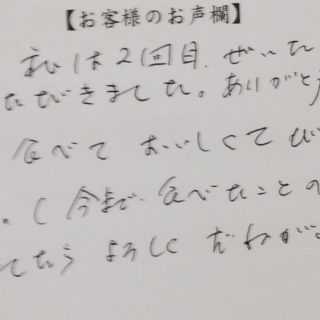 【お客様のお声欄】
私は2回目、ぜいた
ただきました。ありがと
食べて おいしくてび
。(今まで、食べたことの
たら よろしく おねがい